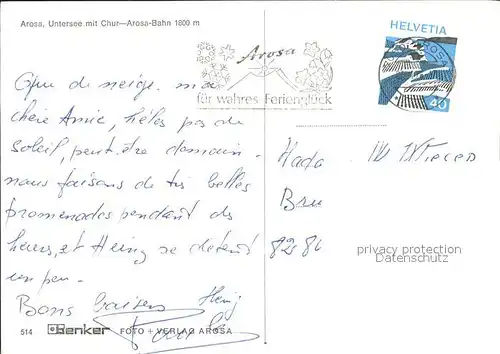 Arosa, Untersee mit Chur—Arosa-Bahn 1800 m
HELVETIA
Arosa
AROSA
für wahres Ferienglück
40
Que de neige. ma
chère Amie, hélas pas de
soleil, peut être domain.
nous faisons de très belles
promenades pendant des
heures, et Heinz se détend
un peu.
Bons baisers Heinz
8286
privacy protection
Datenschutz
514 Benker FOTO + VERLAG AROSA